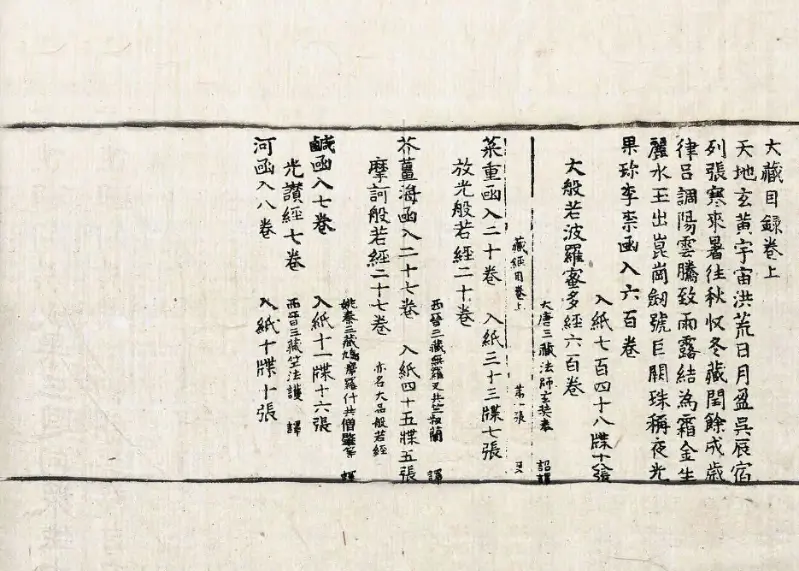 大藏目録卷上
天地玄黃宇宙洪荒日月盈昃辰宿
列張寒來暑往秋収冬藏閏餘成歲
律呂調陽雲騰致雨露結為霜金生
麗水玉出崑崗劒號巨闕珠稱夜光
果珍李柰函入六百卷
入紙七百四十八牒十八張
大般若波羅蜜多經六百卷
大唐三藏法師玄奘奉 詔譯
藏經目卷上 第一張
菜重函入二十卷 入紙三十三牒七張
放光般若經二十卷
西晉三藏無羅叉共竺叔蘭 譯
芥薑海函入二十七卷 入紙四十五牒五張
摩訶般若經二十七卷 亦名大品般若經
姚秦三藏鳩摩羅什共僧䂮等 譯
鹹函入七卷 入紙十一牒十六張
光讃經七卷 西晉三藏竺法護 譯
河函入八卷 入紙十牒十張